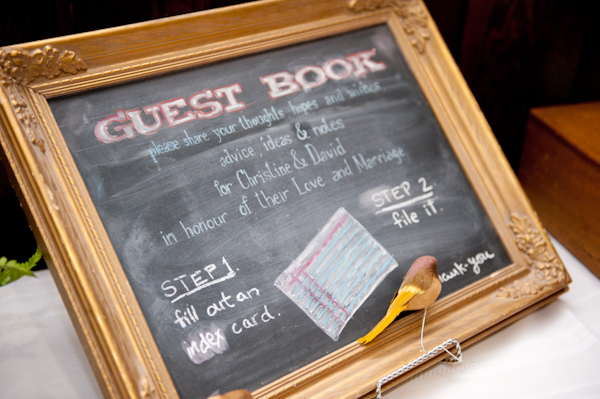 GUEST BOOK
please share your thoughts hopes and wishes
advice, ideas & notes
for Christine & David
in honour of their Love and Marriage
STEP 1.
fill out an
index card.
STEP 2.
file it.
thank-you